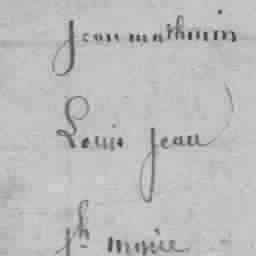 Jean mathurin
Louis Jean
Jh